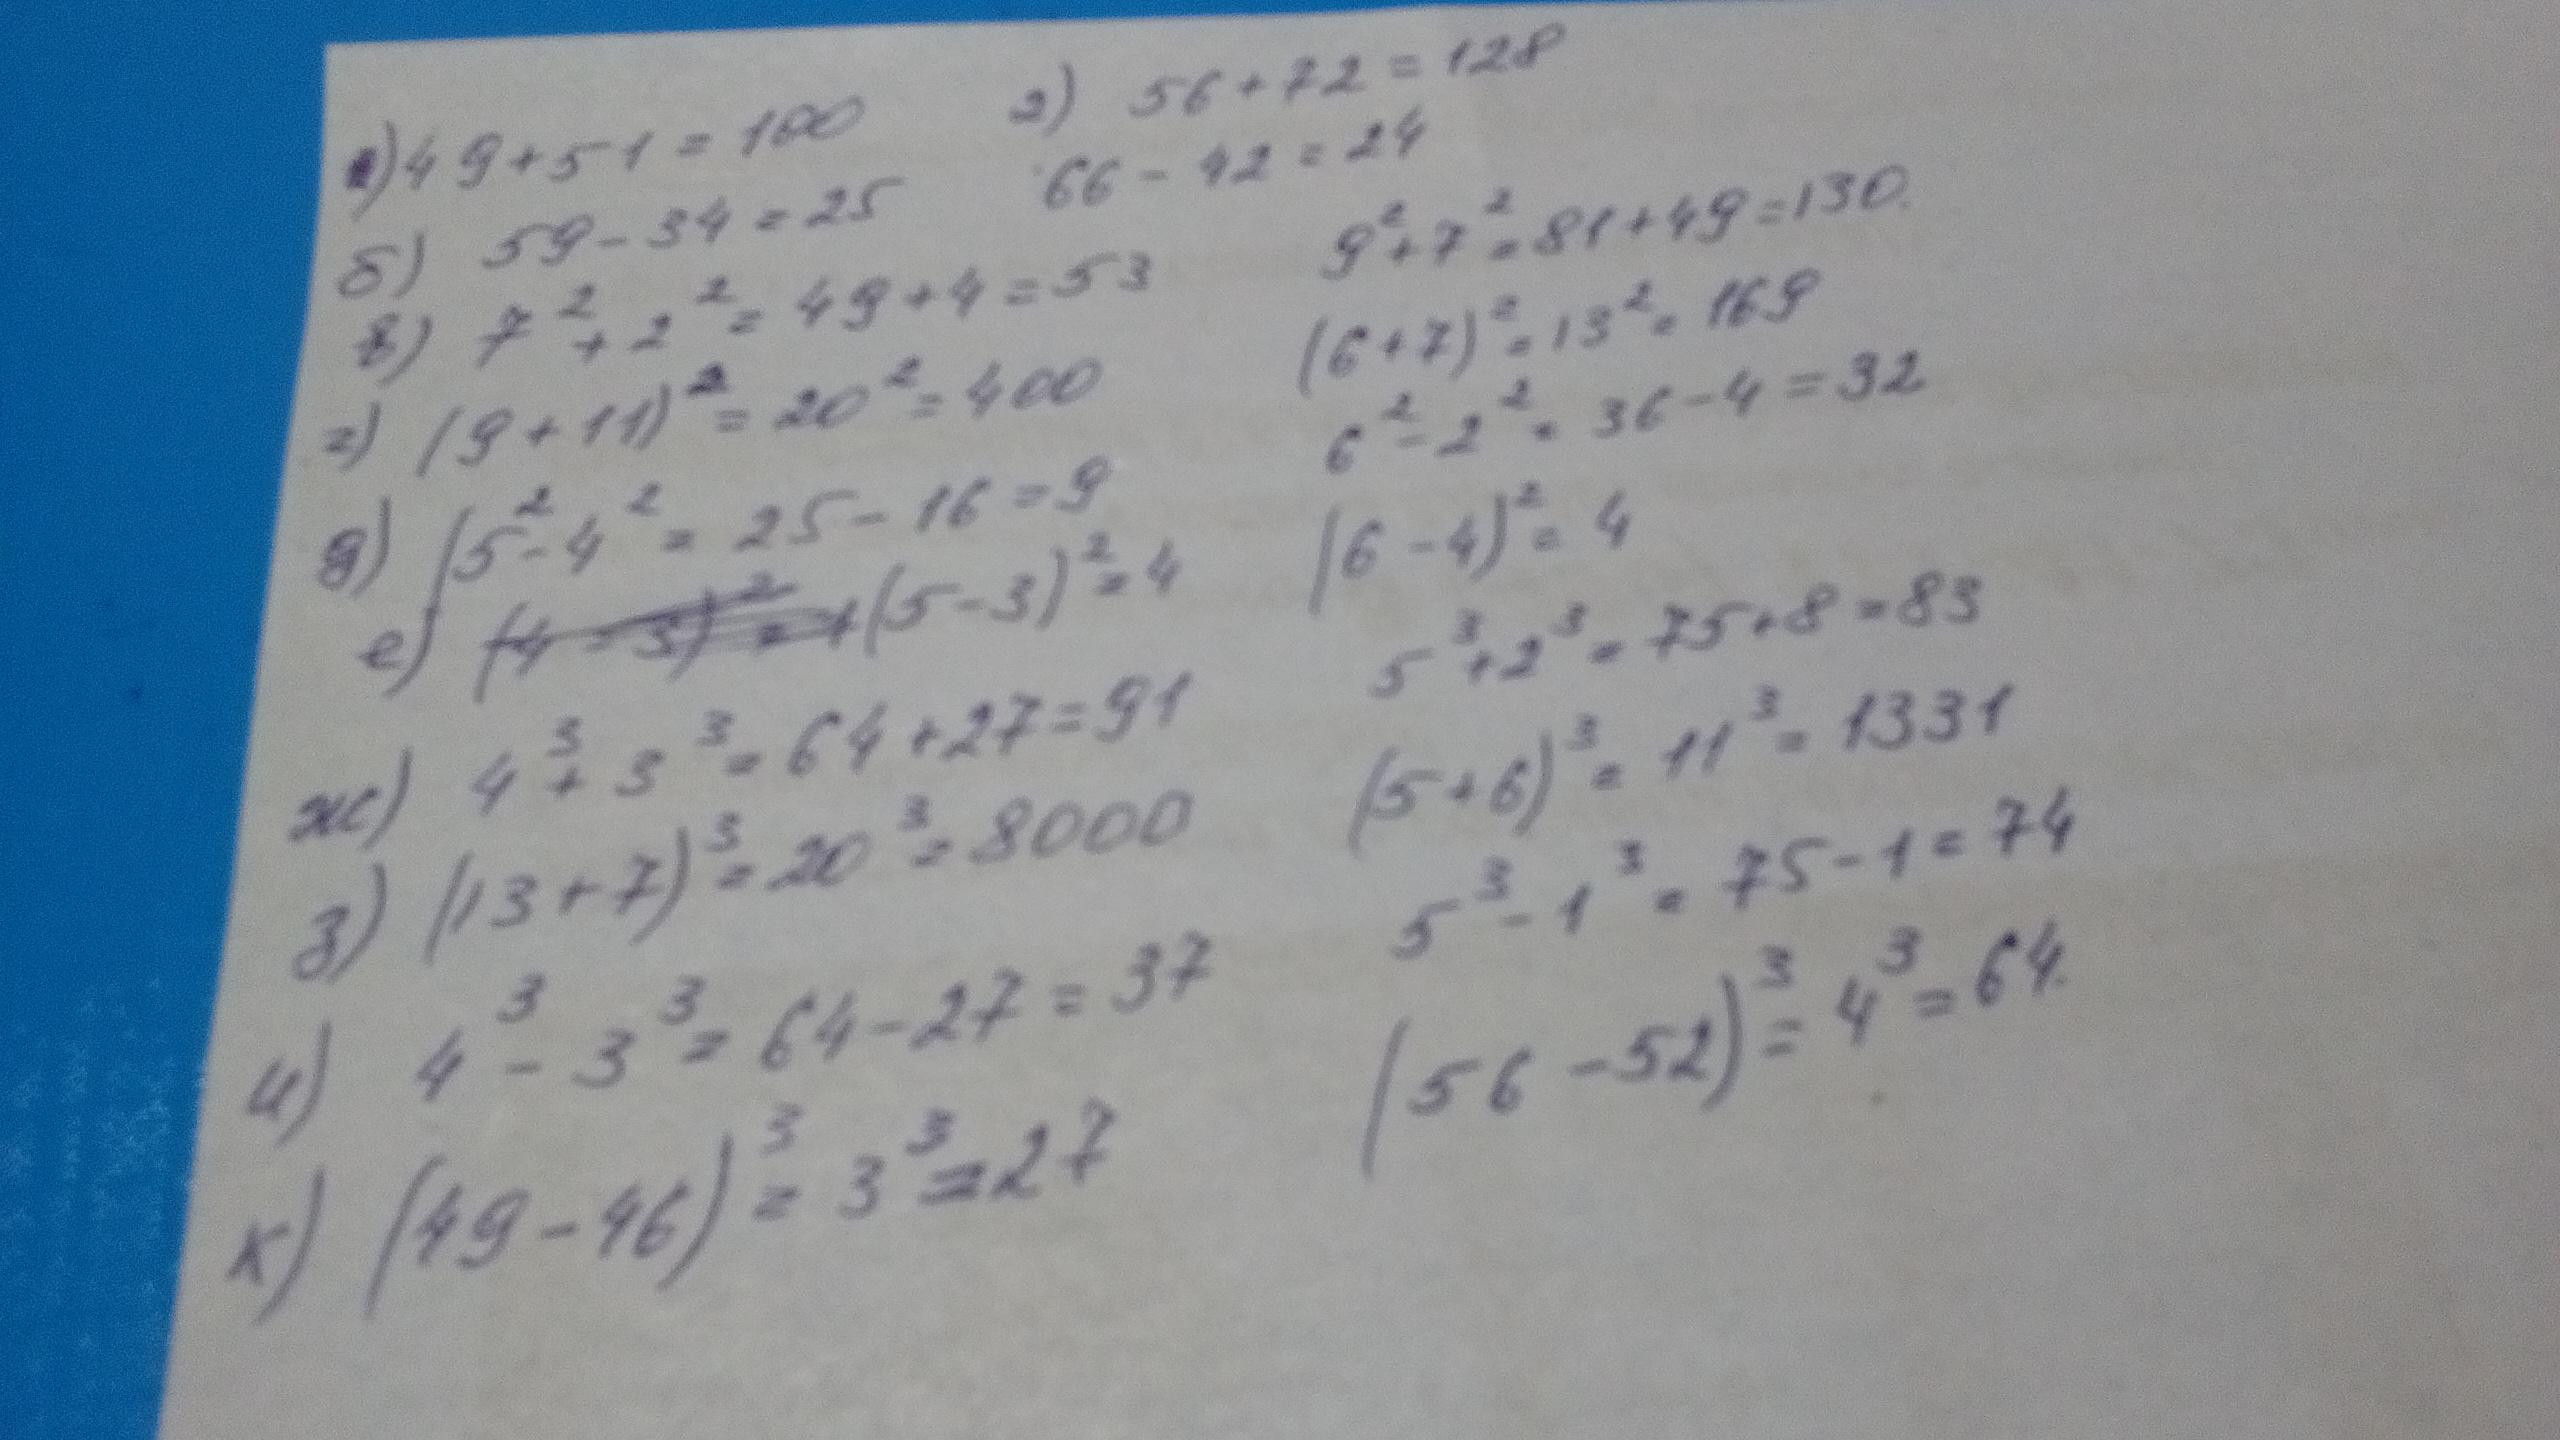 а) 49+51=100
б) 59-34=25
в) 7²+2²=49+4=53
г) (9+11)²=20²=400
д) 5²-4²=25-16=9
е) (5-3)²=4
ж) 4³+3³=64+27=91
з) (13+7)³=20³=8000
и) 4³-3³=64-27=37
к) (49-46)³=3³=27
2) 56+72=128
66-42=24
9²+7²=81+49=130.
(6+7)²=13²=169
6²-2²=36-4=32
(6-4)²=4
5³+2³=75+8=83
(5+6)³=11³=1331
5³-1³=75-1=74
(56-52)³=4³=64.